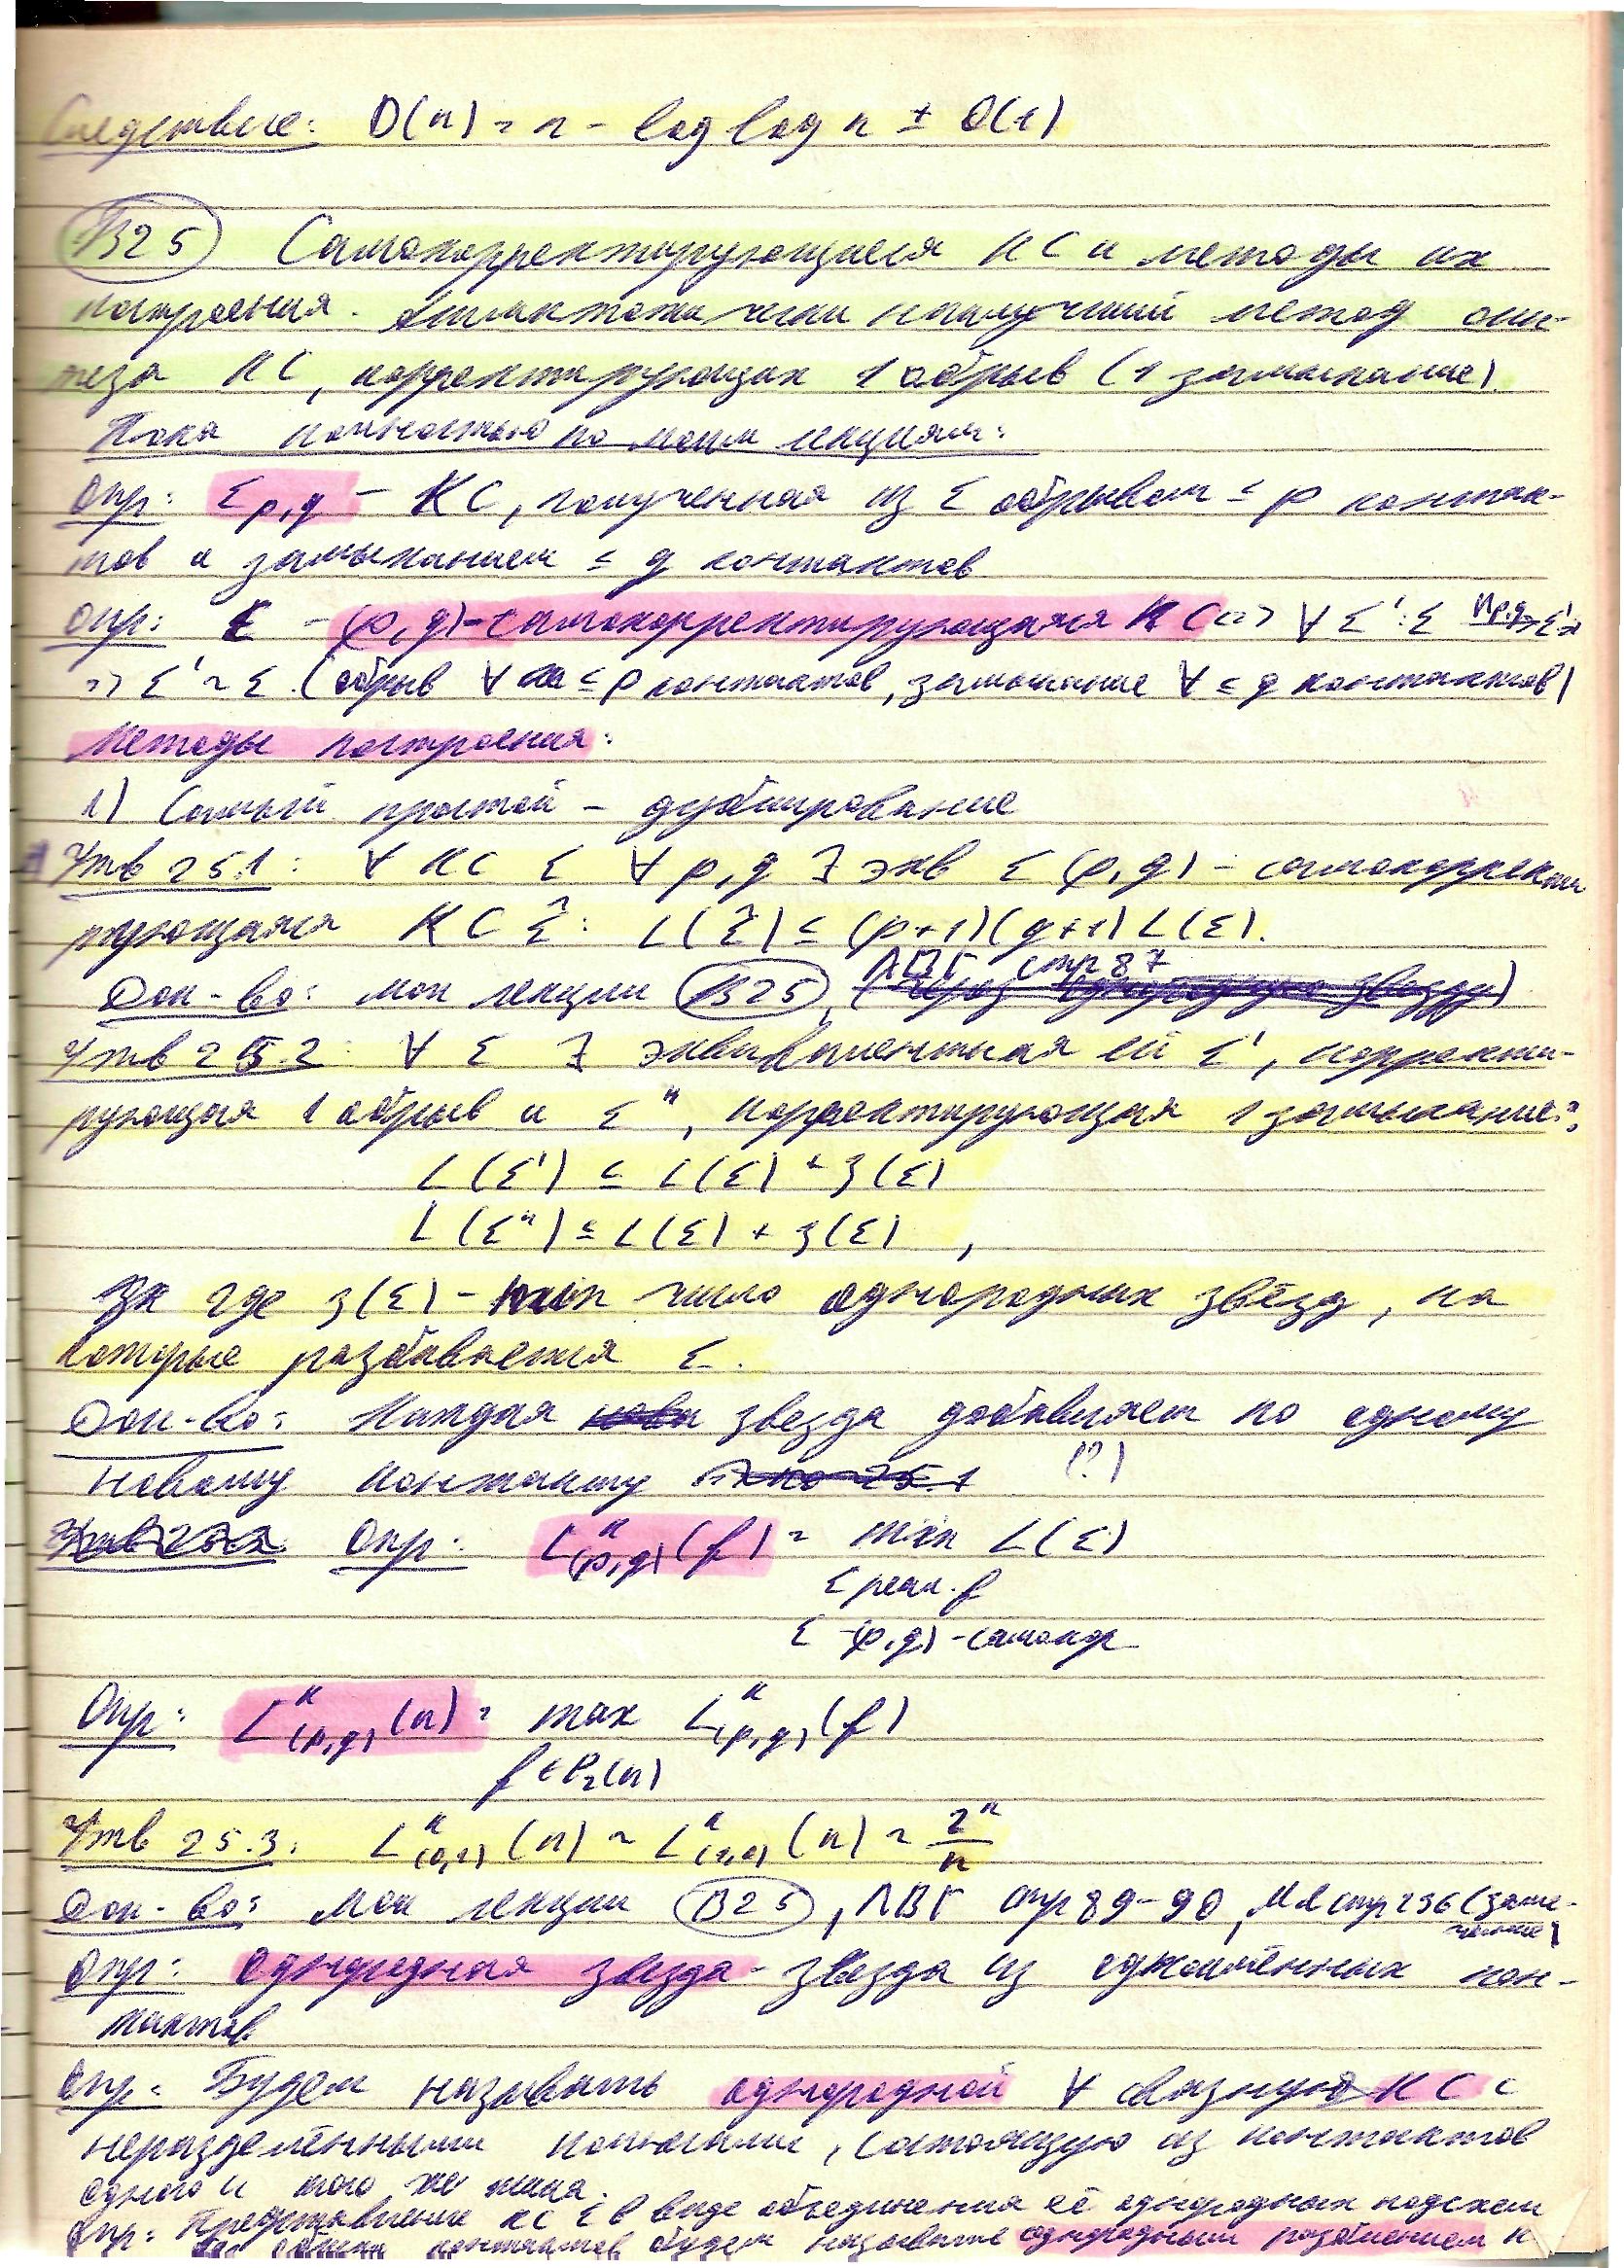 Следствие: D(n) = n - log log n ± O(1)
B25 Самокорректирующиеся КС и методы их
построения. Асимптотически наилучший метод син-
теза КС, корректирующих 1 обрыв (1 замыкание)
Пока полностью по моим лекциям:
Опр: Σp,q – КС, полученная из Σ обрывом ≤ p контак-
тов и замыканием ≤ q контактов
Опр: Σ – (p,q)-самокорректирующаяся КС <=> ∀ Σ': Σ Иp,q> Σ' =>
=> Σ' ~ Σ. (обрыв ∀ ≤ p контактов, замыкание ∀ ≤ q контактов)
Методы построения:
1) Самый простой – дублирование
Утв 25.1: ∀ КС Σ ∀ p,q ∃ экв Σ (p,q) – самокорректи
рующаяся КС Σ̂: L(Σ̂) ≤ (p+1)(q+1) L(Σ).
Док-во: мои лекции B25, ЛВГ стр 87
Утв 25.2: ∀ Σ ∃ эквивалентная ей Σ', корректи-
рующая 1 обрыв и Σ", корректирующая 1 замыкание:
L(Σ') ≤ L(Σ) + ξ(Σ)
L(Σ") ≤ L(Σ) + ξ(Σ),
где ξ(Σ) – min число однородных звёзд, на
которые разбивается Σ.
Док-во: Каждая звезда добавляет по одному
новому контакту (?)
Опр: L^К(p,q)(f) = min L(Σ)
Σ реал. f
Σ -(p,q)-самокор
Опр: L^К(p,q)(n) = max L^К(p,q)(f)
f ∈ P₂(n)
Утв 25.3: L^К(0,1)(n) ~ L^К(1,0)(n) ~ 2ⁿ/n
Док-во: Мои лекции B25, ЛВГ стр 89-90, МЛ стр 236 (заме-
чание)
Опр: Однородная звезда – звезда из одноимённых кон-
тактов
Опр: Будем называть однородной ∀ связную КС с
неразделёнными полюсами, состоящую из контактов
одного и того же типа.
Опр: Представление КС Σ в виде объединения её однородных подсхем
контактов будем называть однородным разбиением К